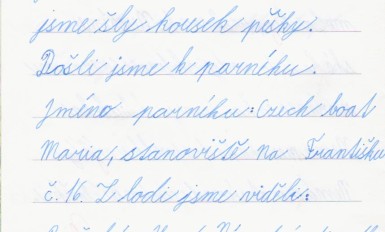 jsme šly kousek pěšky.
Došli jsme k parníku.
Jméno parníku: Czech boat
Maria, stanoviště na Františku
č. 16. Z lodi jsme viděli: